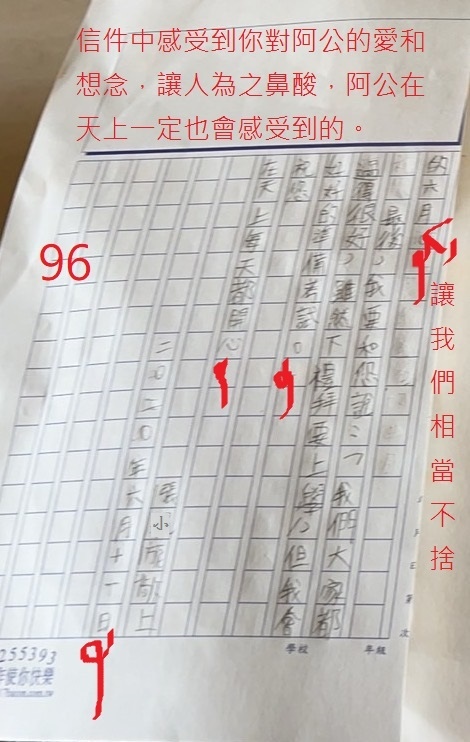 信件中感受到你對阿公的愛和
想念，讓人為之鼻酸，阿公在
天上一定也會感受到的。
96
讓我們相當不捨
的六月
最後，我要和您說：「我們大家都
過得很好，雖然下禮拜要上學，但我會
好的準備考試。
祝您
在天上每天都開心
張小敬上
二〇二〇年六月十一日
年 月 日 第 次
學校 年級
255393
年使你快樂